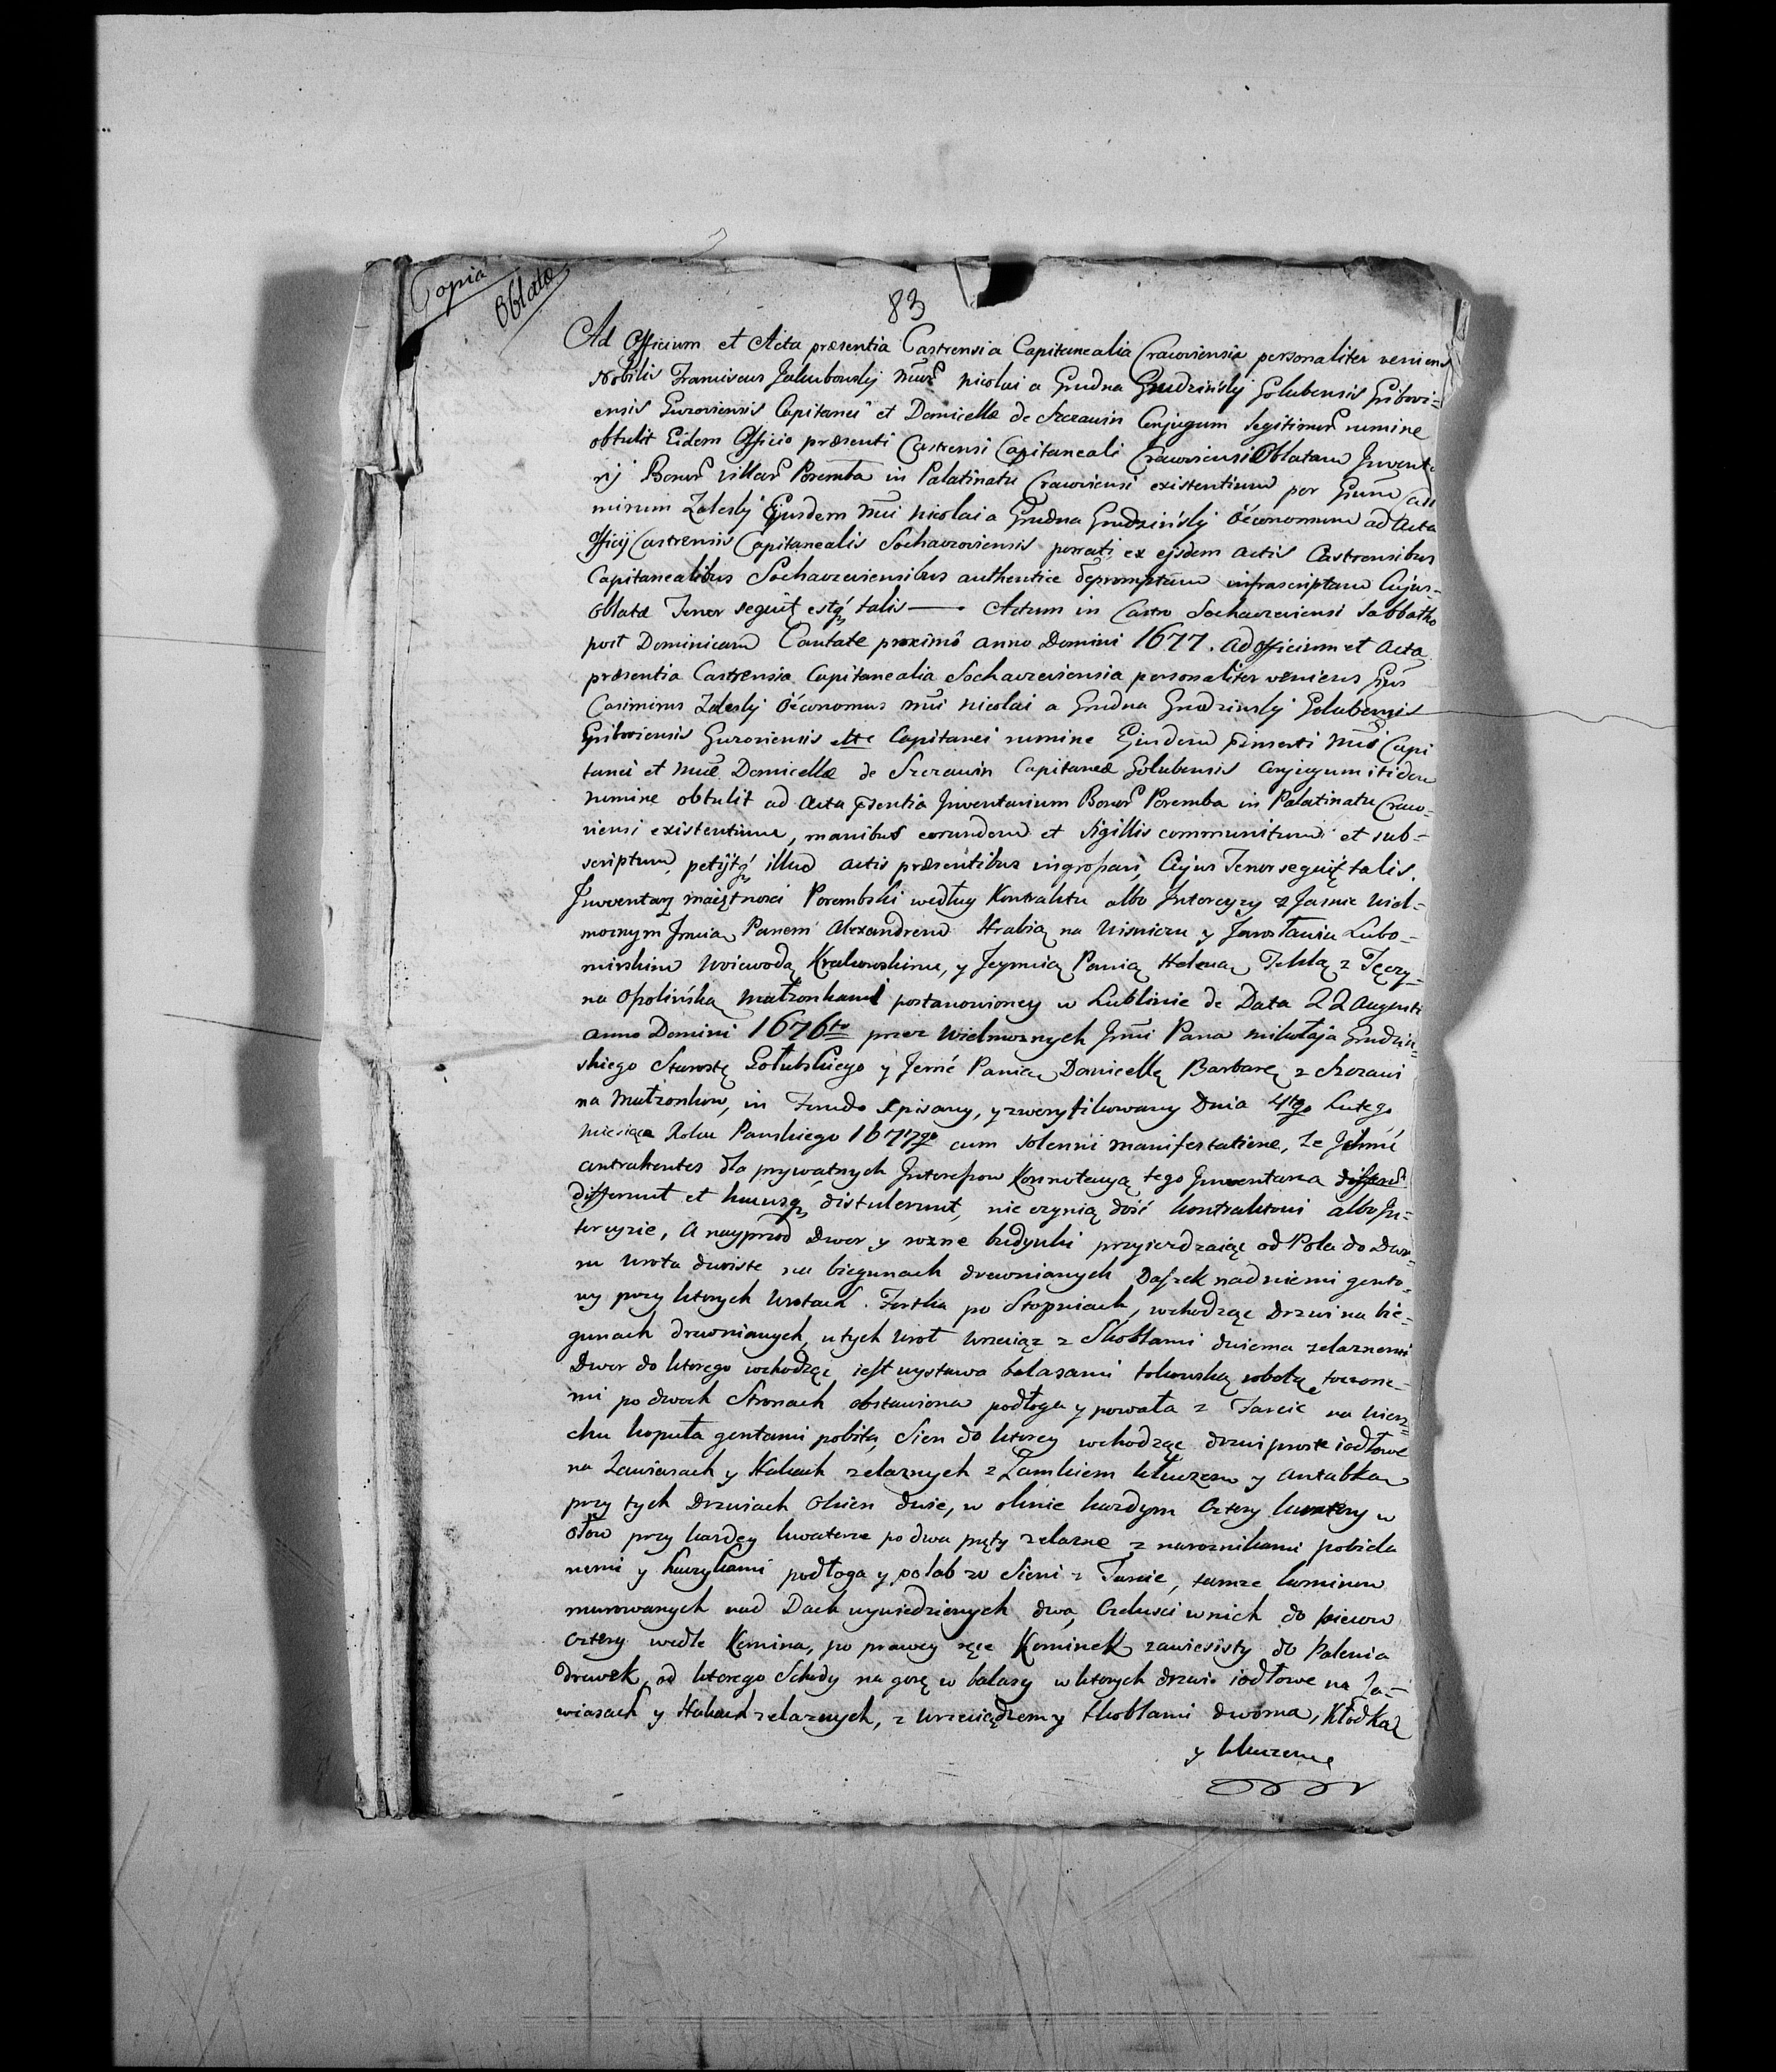 Copia
Oblatæ
83
Ad Officium et Acta præsentia Castrensia Capitanealia Cracoviensia personaliter veniens
Nobilis Franciscus Jakubowskij nicolai a Grudna Grudzińskij Golubensis Gribovi=
ensis Guzoviensis Capitanei et Domicellæ de Szczawin Conjugum legitimor nomine
obtulit Eidem Officio præsenti Castrensi Capitaneali Cracoviensi Oblatam Inventa
rij Bonor villar Poremba in Palatinatu Cracoviensi existentium per Gnum Casi
mirum Zaleskij Ejusdem Mci Nicolai a Grudna Grudzińskij Oeconomum ad Acta
Officij Castrensis Capitanealis Sochaczoviensis porrecti ex ejsdem actis Castrensibus
Capitanealibus Sochaczeviensibus authentice depromptam infrascriptam Cujus-
Oblatæ Tenor seguit estq talis —— . Actum in Castro Sochaczeviensi Sabbatho
post Dominicam Cantate proximo anno Domini 1677. ad officium et Acta
præsentia Castrensia Capitanealia Sochaczeviensia personaliter veniens Gns
Casimirus Zaleskij Oeconomus Mci Nicolai a Grudna Grudzinskij Golubensis
Griboviensis Guzoviensis etc Capitanei nomine Ejusdem Mci Capi
tanei et Mcæ Domicellæ de Szczawin Capitaneæ Golubensis Conjugum itidem
nomine obtulit ad acta psentia Inventarium Bonor Poremba in Palatinatu Craco-
viensi existentium, manibus eorundem et Sigillis communitum et sub-
scriptum, petijtq illud actis præsentibus ingrossari, Cujus Tenor seguit talis.
Inwentarz maiętnosci Porembski według Kontraktu albo Intercyzy z Jasnie Wiel-
moznym Jmcią Panem Alexandrem Hrabią na Wisniczu y Jarosławiu Lubo-
mirskim Woiewodą Krakowskim, y Jeymcią Panią Heleną Teklą z Tęczy-
na Opolińską Małzonkami postanowioney w Lublinie de Data 22 Augusti
anno Domini 1676to przez Wielmoznych Jmci Pana Mikołaja Grudzin=
skiego Starostę Gołubskiego y Jemć Panią Domicellę Barbarę z Szczawi
na Małzonkow, in Fundo spisany, y zweryfikowany Dnia 4tego Lutego
Miesiąca Roku Panskiego 1677go cum solenni manifestatione, ze Jchmć
Contrahentes dla prywatnych Interessow Konnotacyą tego Inwentarza
differunt et hucusq distulerunt, nie czynią dosć kontraktowi albo In=
tercyzie, A nayprzod Dwor y rozne budynki przyjezdzaiąc od Pola do Dwo=
ru Wrota dwoiste na biegunach drewnianych Daszek nad niemi gonto-
wy przy ktorych Wrotach. Fortka po Stopniach, wchodząc Drzwi na bie-
gunach drewnianych, u tych Wrot Wrzeciąz z Skoblami dwiema zelaznemi
Dwor do ktorego wchodząc iest wystawa balasami tokarską robotą toczone-
mi po dwoch Stronach obstawiona podłoga y powała z Tarcic na wierz=
chu kopuła gontami pobita, Sien do ktorey wchodząc drzwi proste iodłowe
na Zawiasach y Hakach zelaznych z Zamkiem kluczem y antabką
przy tych Drzwiach Okien dwie, w oknie kazdym cztery kwatery w
ołow przy kazdey kwaterze po dwa pręty zelazne z naroznikami pobiela
nemi y haczykami podłoga y połab w Sieni z Tarcic, tamze kominow
murowanych nad Dach wywiedzionych dwa, Czelusci w nich do piecow
cztery wedle Komina, po prawey ręce Kominek zawiesisty do Palenia
drewek, od ktorego Schody na gorę w balasy w ktorych drzwi iodłowe na Za-
wiasach y Hakach zelaznych, z Wrzeciądzem y Skoblami dwoma, Kłodką
y kluczem